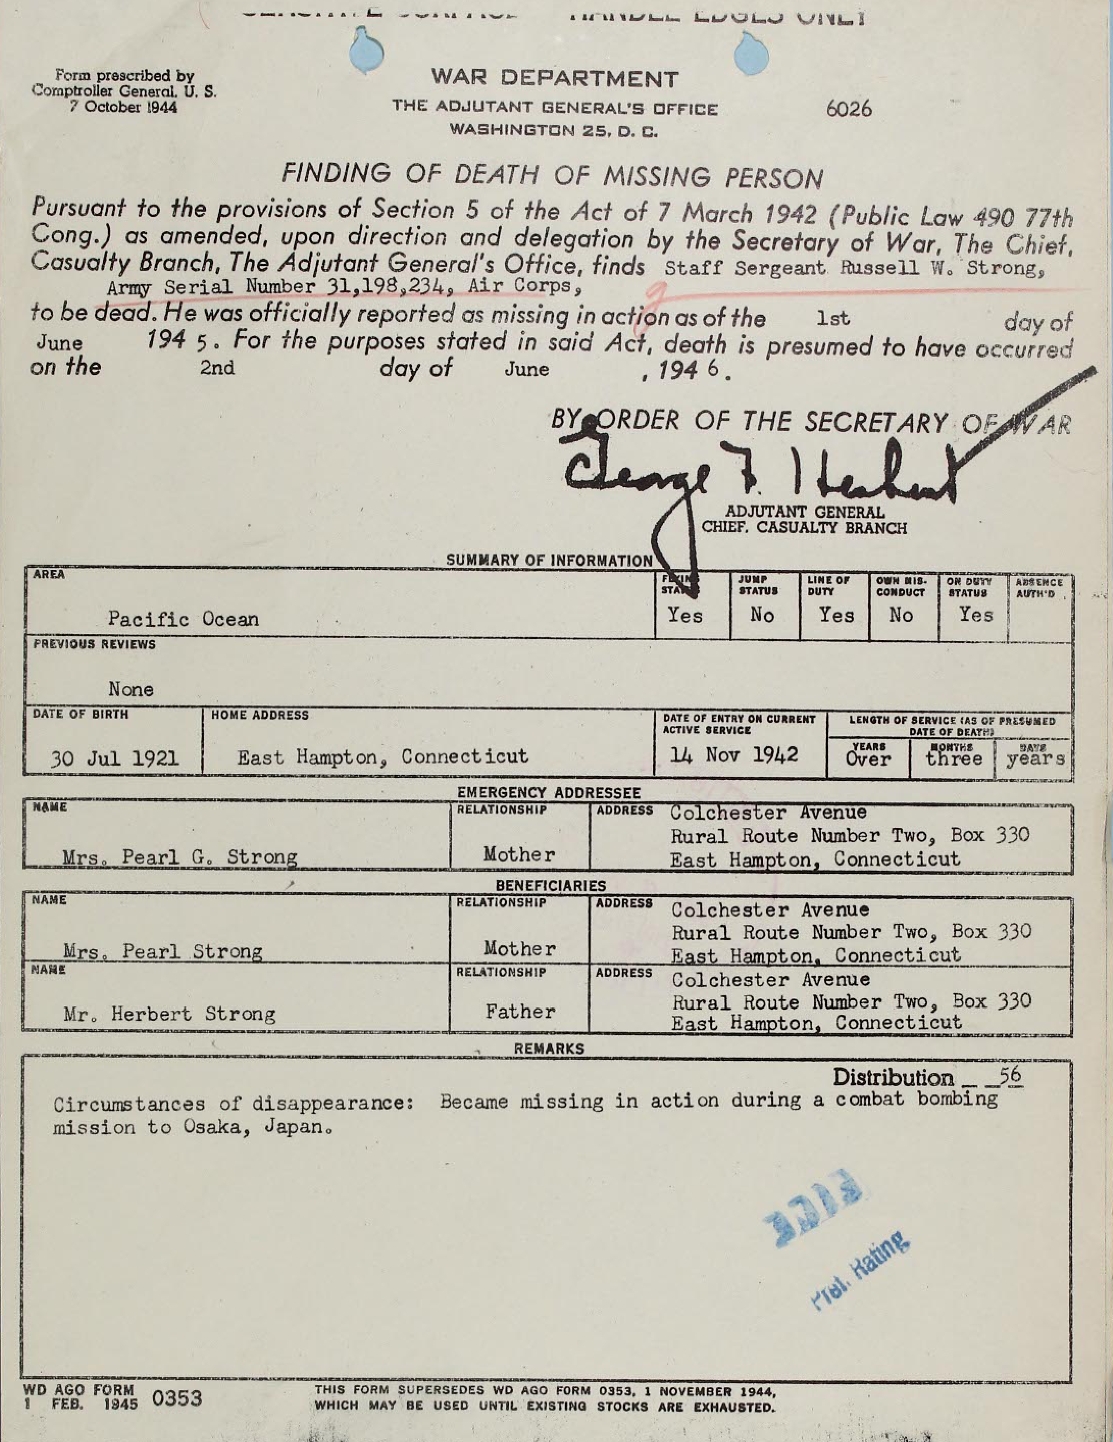 HANDLE EDGES ONLY
Form prescribed by
Comptroller General, U. S.
7 October 1944
WAR DEPARTMENT
THE ADJUTANT GENERAL'S OFFICE
WASHINGTON 25, D. C.
6026
FINDING OF DEATH OF MISSING PERSON
Pursuant to the provisions of Section 5 of the Act of 7 March 1942 (Public Law 490 77th
Cong.) as amended, upon direction and delegation by the Secretary of War, The Chief,
Casualty Branch, The Adjutant General's Office, finds Staff Sergeant Russell W. Strong,
Army Serial Number 31,198,234, Air Corps,
to be dead. He was officially reported as missing in action as of the 1st day of
June 194 5. For the purposes stated in said Act, death is presumed to have occurred
on the 2nd day of June , 194 6.
BY ORDER OF THE SECRETARY OF WAR
George F. Herbert
ADJUTANT GENERAL
CHIEF, CASUALTY BRANCH
SUMMARY OF INFORMATION
AREA
Pacific Ocean
FLYING STATUS
Yes
JUMP STATUS
No
LINE OF DUTY
Yes
OWN MIS-CONDUCT
No
ON DUTY STATUS
Yes
ABSENCE AUTH'D
PREVIOUS REVIEWS
None
DATE OF BIRTH
30 Jul 1921
HOME ADDRESS
East Hampton, Connecticut
DATE OF ENTRY ON CURRENT
ACTIVE SERVICE
14 Nov 1942
LENGTH OF SERVICE (AS OF PRESUMED
DATE OF DEATH)
YEARS MONTHS DAYS
Over three years
EMERGENCY ADDRESSEE
NAME
Mrs. Pearl G. Strong
RELATIONSHIP
Mother
ADDRESS Colchester Avenue
Rural Route Number Two, Box 330
East Hampton, Connecticut
BENEFICIARIES
NAME
Mrs. Pearl Strong
RELATIONSHIP
Mother
ADDRESS Colchester Avenue
Rural Route Number Two, Box 330
East Hampton, Connecticut
NAME
Mr. Herbert Strong
RELATIONSHIP
Father
ADDRESS Colchester Avenue
Rural Route Number Two, Box 330
East Hampton, Connecticut
REMARKS
Distribution _ _56
Circumstances of disappearance: Became missing in action during a combat bombing
mission to Osaka, Japan.
Rating
WD AGO FORM
1 FEB. 1945 0353
THIS FORM SUPERSEDES WD AGO FORM 0353, 1 NOVEMBER 1944,
WHICH MAY BE USED UNTIL EXISTING STOCKS ARE EXHAUSTED.